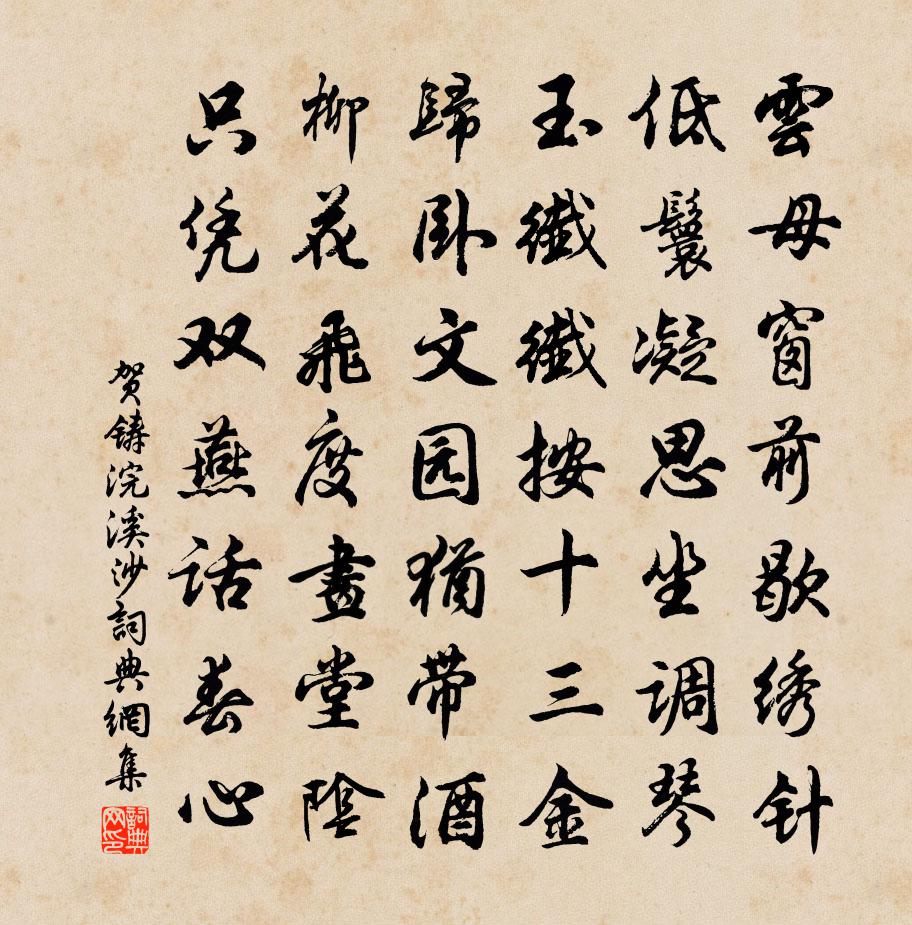 雲母窗前歇绣针
低鬟凝思坐调琴
玉纖纖按十三金
歸卧文园猶带酒
柳花飛度畫堂陰
只凭双燕话春心
贺鑄浣溪沙詞典網集
詞典网印